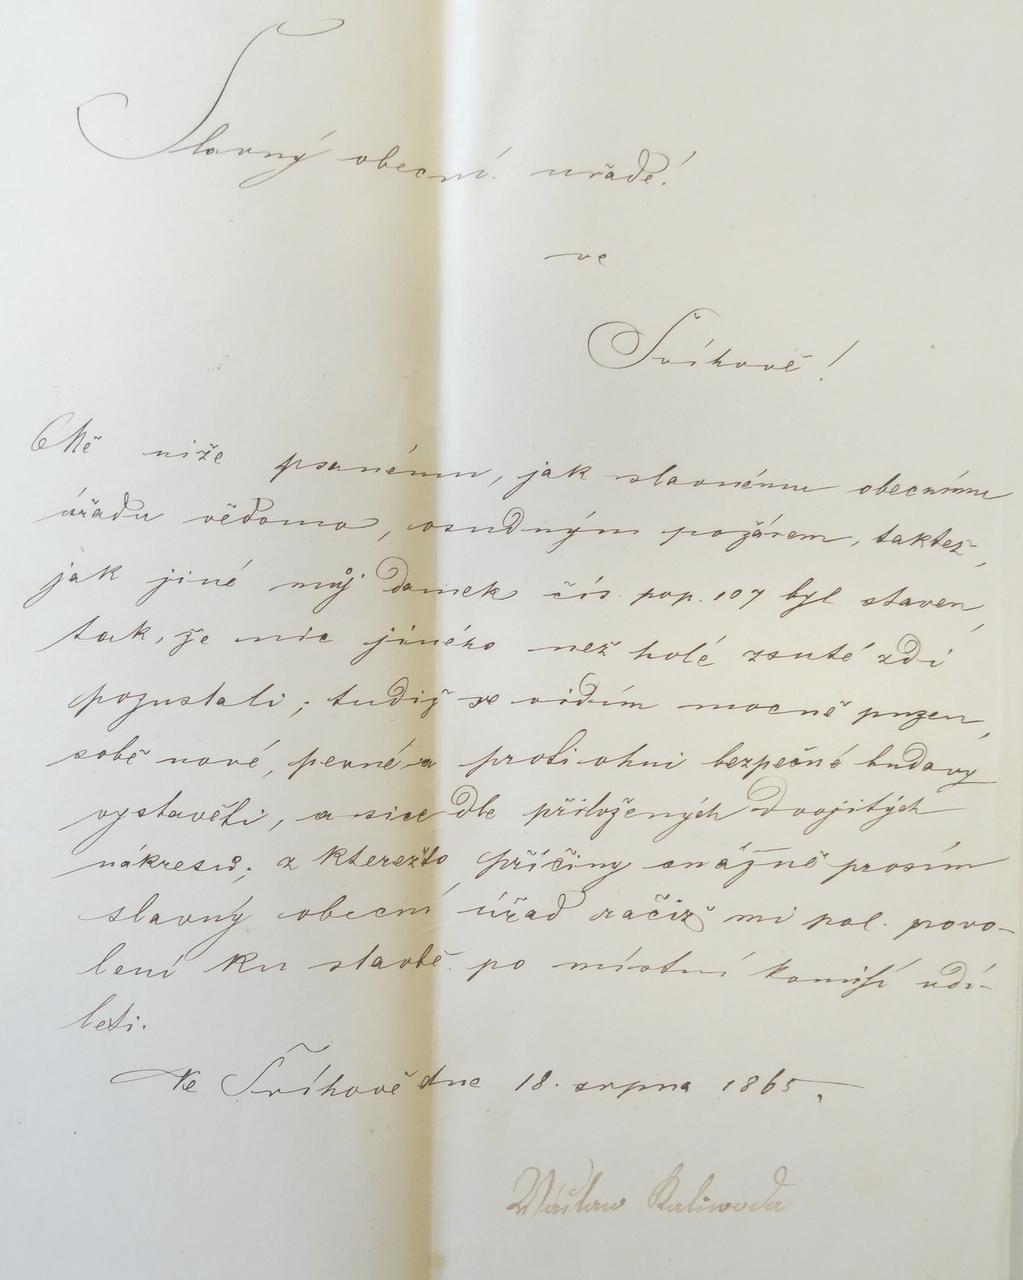 Slavný obecní úřade!
ve
Švihově!
Mě níže psanému, jak slavnému obecnímu
úřadu vědomo, osudným požárem, taktež,
jak jiné můj domek čís. pop. 107 byl staven,
tak, že nic jiného než holé zsuté zdi
pozustali; tudíž se vidím mocně puzen,
sobě nové, pevné a proti ohni bezpečné budovy
vystavěti, a sice dle přiložených dvojitých
nákresů; z kterežto příčiny snažně prosím
slavný obecní úřad račiž mi pol. povo-
lení ku stavbě po místní komisí udí-
leti.
Ve Švihově dne 18. srpna 1865.
Václaw Kaliwoda